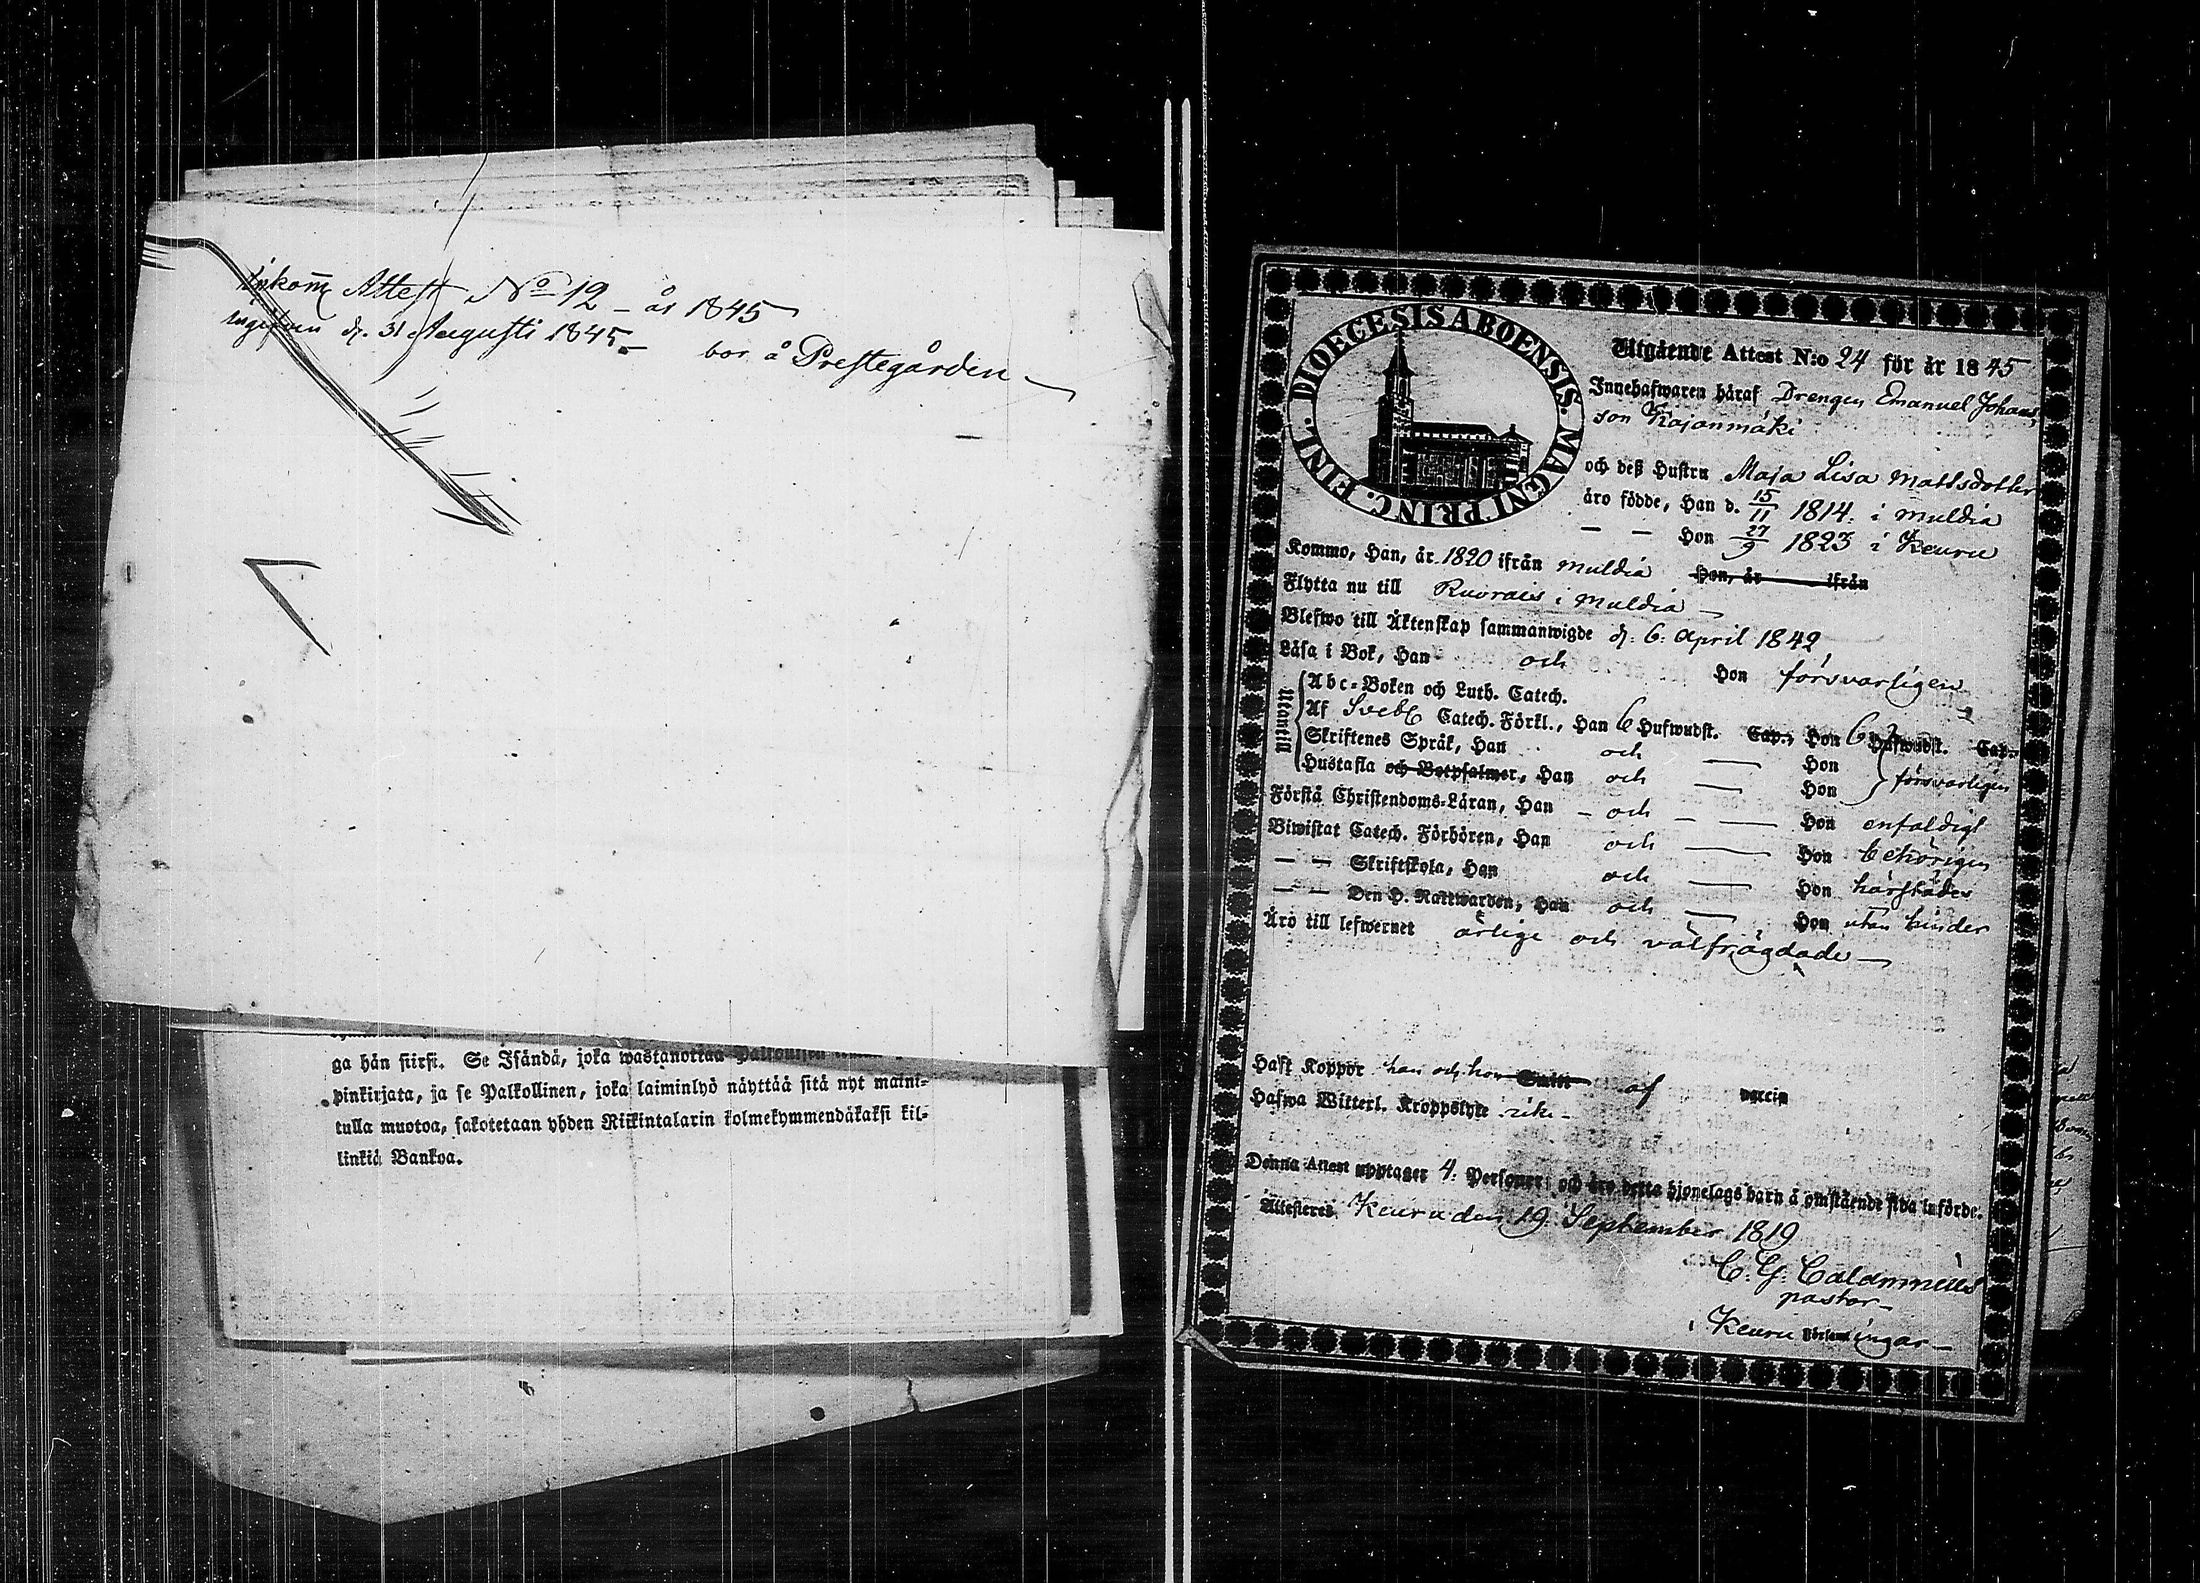 Inkom̅ Attest No 12 – år 1845
d. 31 Augusti 1845 –
bor å Prestegården
ga hän siirsi. Se Isändä, joka wastanottaa
pinkirjata, ja se Palkollinen, joka laiminlyö näyttää sitä nyt maini-
tulla muotoa, sakotetaan yhden Riikintalarin kolmekymmendäkaksi kil-
linkiä Bankoa.
DIOECESIS ABOENSIS. MAGNI PRINC. FINL.
Utgående Attest N:o 24 för år 1845
Innehafwaren häraf Drengen Emanuel Johans
son Kajanmäki
och deß Hustru Maja Lisa Mattsdotter
äro födde, Han d. 15/11 1814. i Muldia
— — Hon 27/9 1823 i Keuru
Kommo, Han, år 1820 ifrån Muldia Hon, år ifrån
Flytta nu till i Muldia —
Blefwo till Äktenskap sammanwigde d. 6. April 1842
Läsa i Bok, Han och Hon försvarligen
Utantill
Abc-Boken och Luth. Catech.
Af Svebl Catech. Förkl., Han 6 Hufwudst. Cap., Hon 6 Hufwudst. Cap.
Skriftenes Språk, Han och — Hon
Hustafla och Botpsalmer, Han och — Hon försvarligen
Förstå Christendoms-Läran, Han – och – — Hon enfaldigt
Biwistat Catech. Förhören, Han och — Hon behörigen
— — Skriftskola, Han och — Hon härstädes
— — Den H. Nattwarden, Han och — Hon utan hinder
Äro till lefwernet ärlige och välfrägdade —
Haft Koppor han och hon Smitt af vaccin
Hafwa Witterl. Kroppslyte icke –
Denna Attest upptager 4. Personer och äro detta hjonelags barn å omstående sida införde.
Attesteres Keuru den 19 September 1819
C. G. Calamnius
pastor –
i Keuru Församlingar –